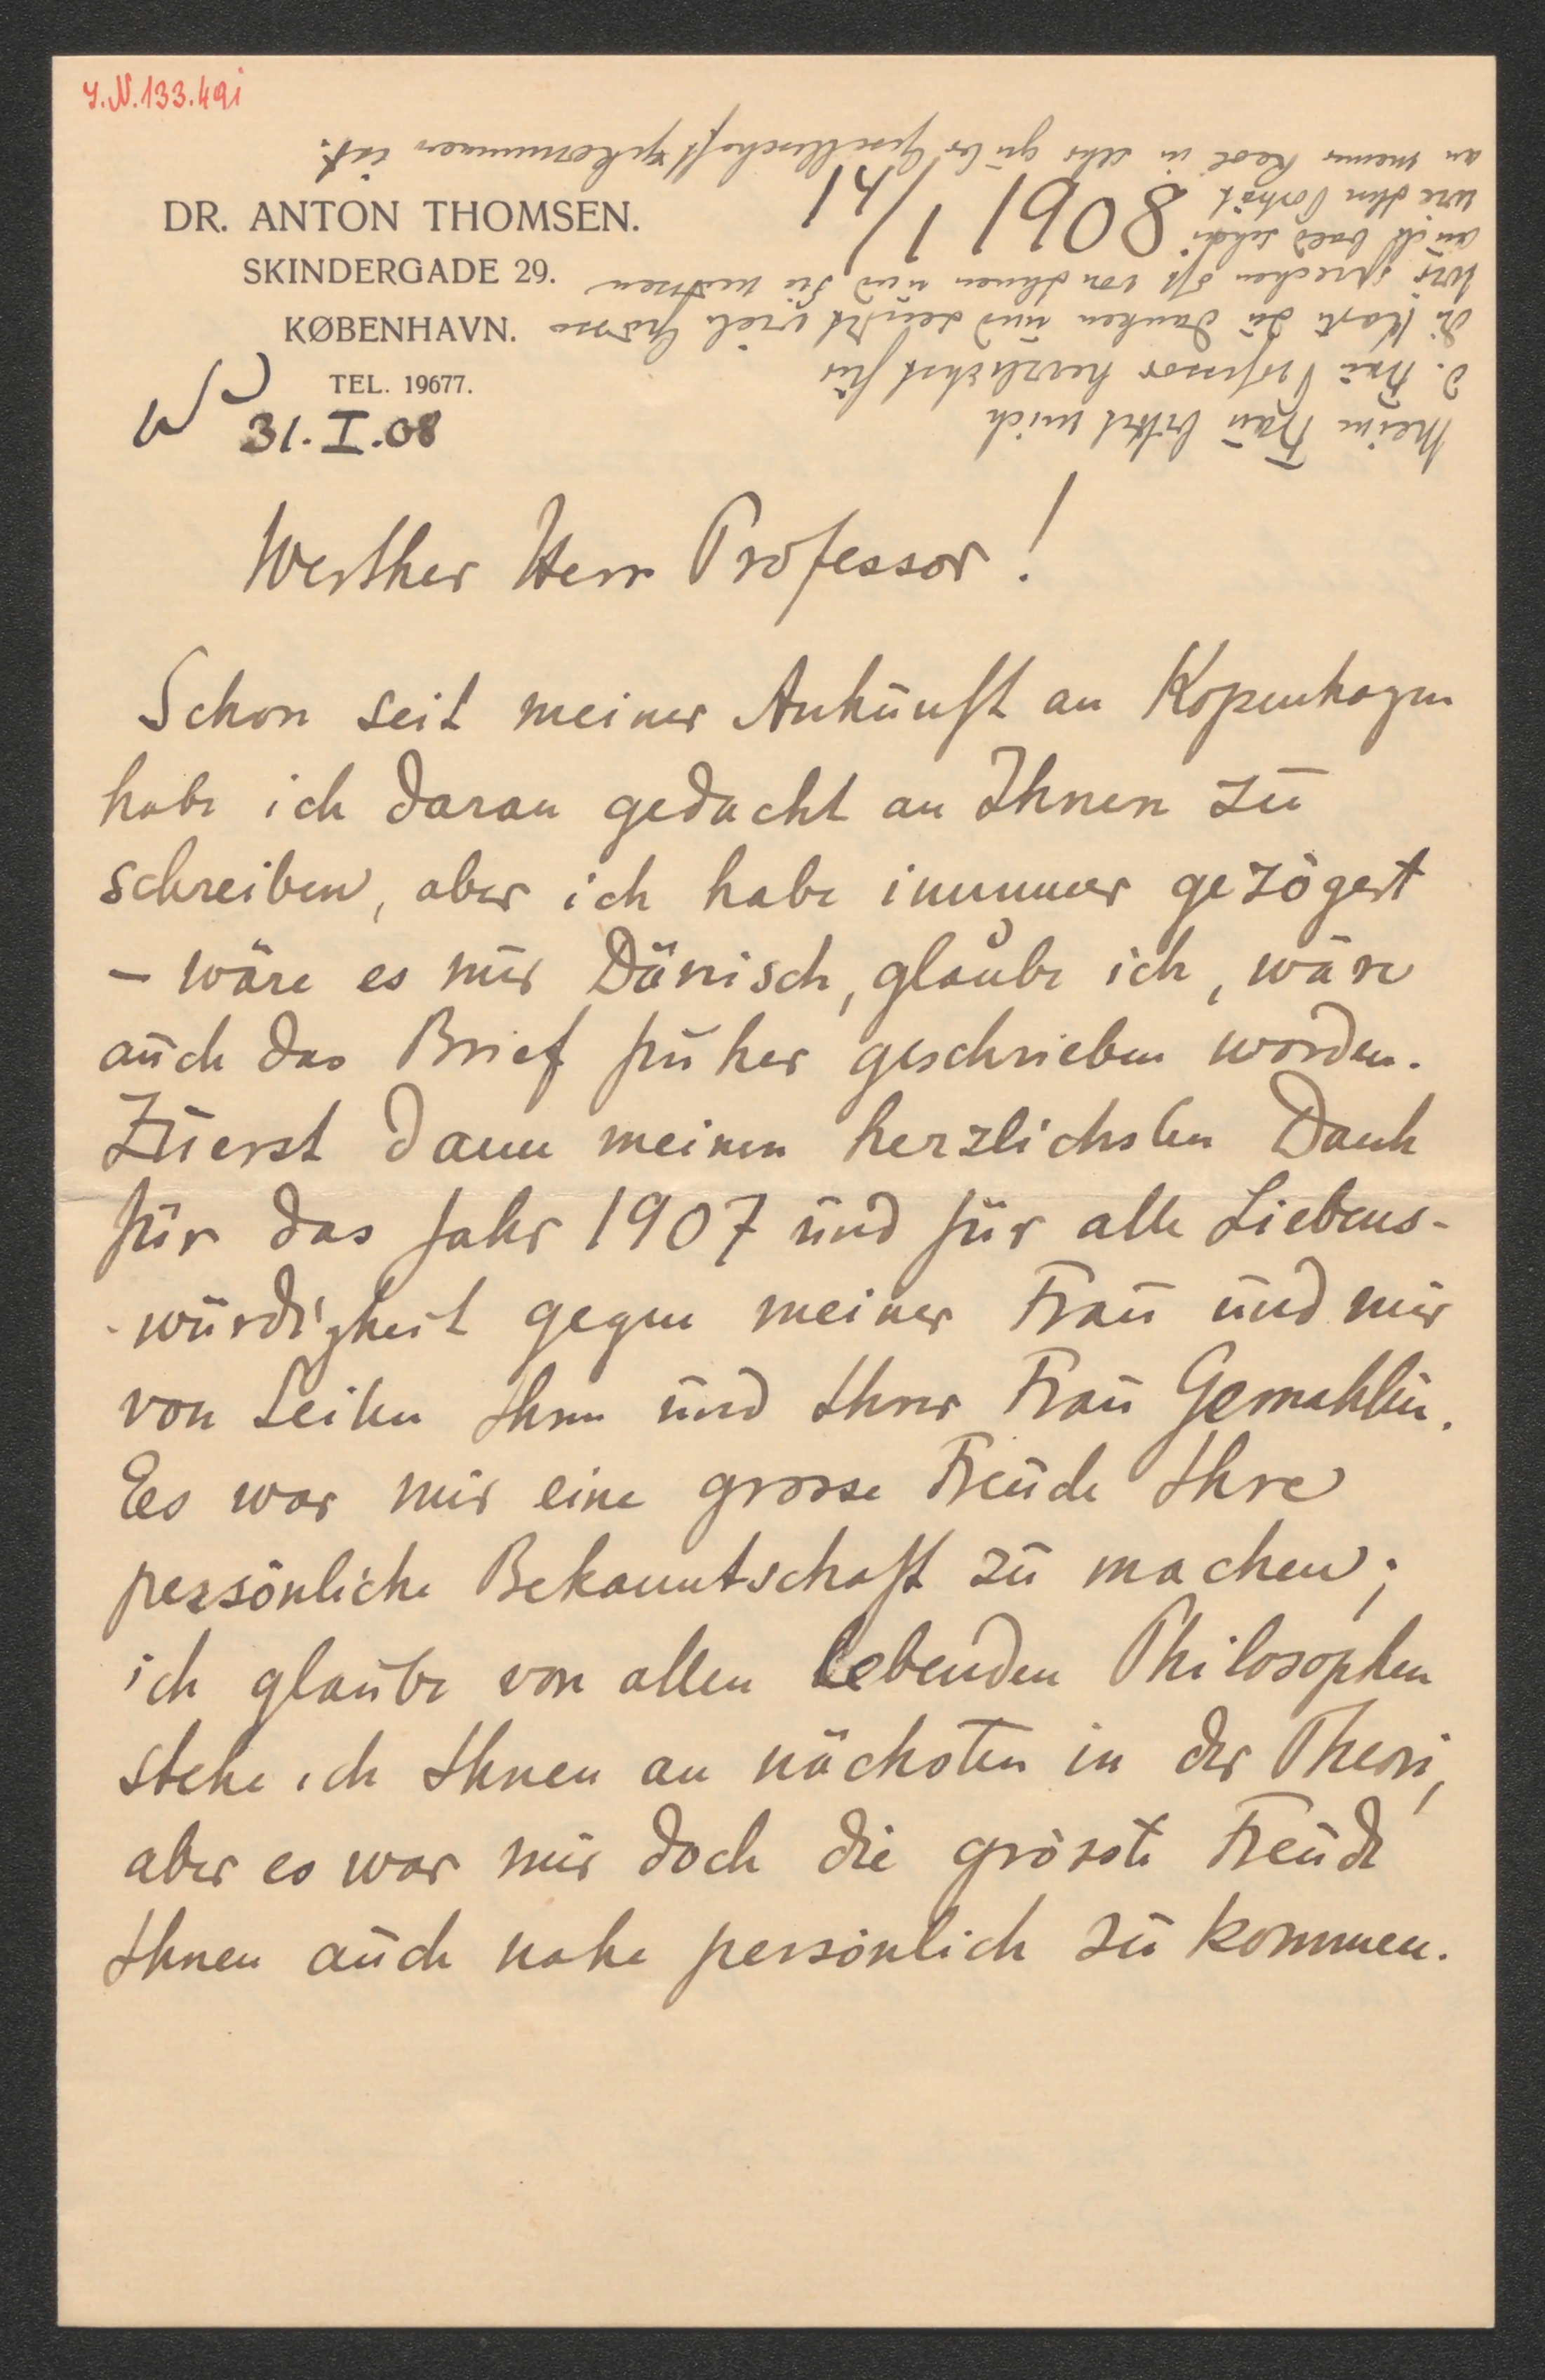 I.N.133.491
DR. ANTON THOMSEN.
SKINDERGADE 29.
KØBENHAVN.
TEL. 19677.
31.I.08
14/1 1908
Werther Herr Professor!
Schon seit meiner Ankunft an Kopenhagen
habe ich daran gedacht an Ihnen zu
schreiben, aber ich habe immer gezögert
– wäre es nur Dänisch, glaube ich, wäre
auch das Brief früher geschrieben worden.
Zuerst dann meinen herzlichsten Dank
für das Jahr 1907 und für alle Liebens-
-würdigkeit gegen meiner Frau und mir
von Seiten Ihnen und Ihrer Frau Gemahlin.
Es war mir eine grosse Freude Ihre
persönliche Bekanntschaft zu machen;
ich glaube von allen lebenden Philosophen
stehe ich Ihnen an nächsten in der Theori,
aber es war mir doch die grösste Freude
Ihnen auch nahe persönlich zu kommen.
Meine Frau bittet mich
d. Frau Professor herzlichst für
die Karte zu danken und sendet viele Grüsse
Wir sprechen oft von Ihnen und Sie müssen
auch bald sehen
wie Ihr Porträt
an meine Reol in sehr guter Gesellschaft gekommen ist.